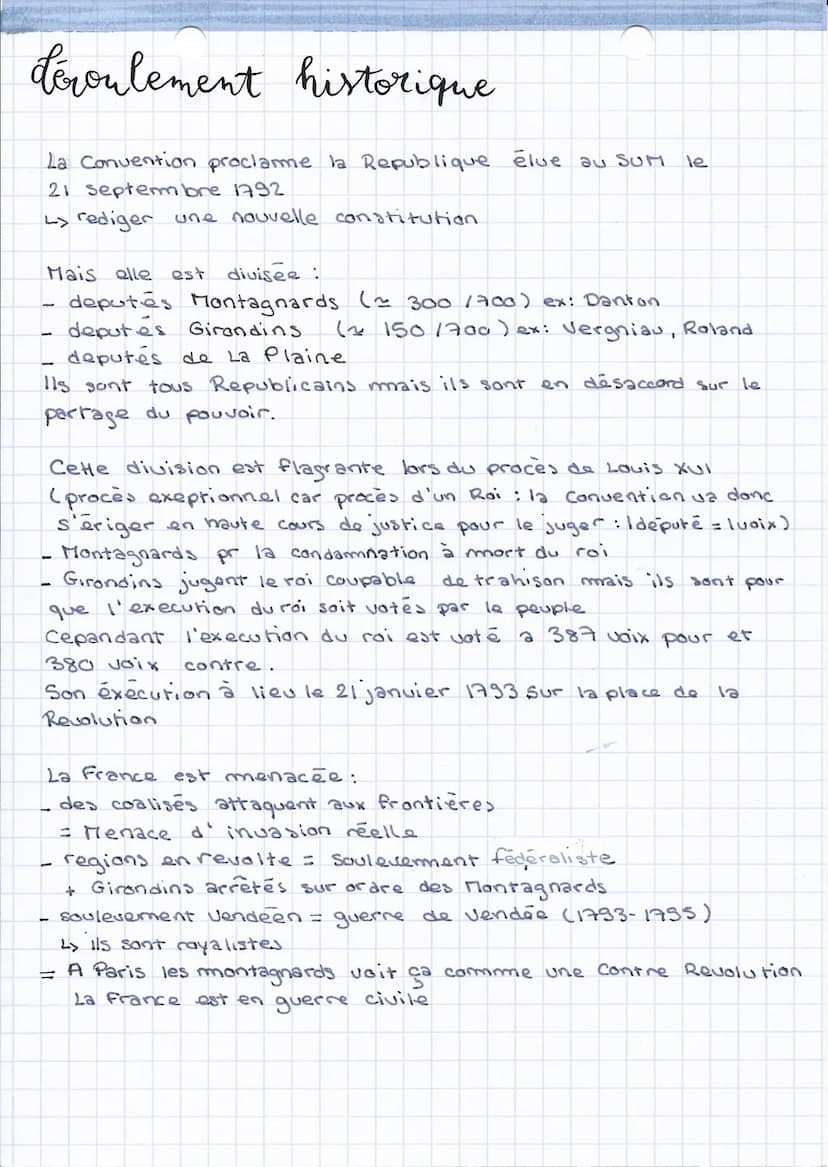 déroulement historique
La Convention proclame la Republique élue au SUM le
21 septembre 1792
↳ rediger une nouvelle constitution
Mais elle est divisée :
- deputés Montagnards (≃ 300 / 700) ex: Danton
- deputés Girondins (≃ 150 / 700) ex: Vergniau, Roland
- deputés de La Plaine
Ils sont tous Republicains mais ils sont en désaccord sur le
partage du pouvoir.
Cette division est flagrante lors du procès de Louis XVI
(procès exeptionnel car procès d'un Roi : la Convention va donc
s'ériger en haute cours de justice pour le juger : 1 député = 1 voix)
- Montagnards pr la condamnation à mort du roi
- Girondins jugent le roi coupable de trahison mais ils sont pour
que l'execution du roi soit votés par le peuple
Cependant l'execution du roi est voté a 387 voix pour et
380 voix contre.
Son éxécution à lieu le 21 janvier 1793 sur la place de la
Revolution
La France est menacée :
- des coalisés attaquent aux frontières
= Menace d'invasion réelle
- regions en revolte = soulevement fédéraliste
+ Girondins arrêtés sur ordre des Montagnards
- soulevement Vendéen = guerre de Vendée (1793-1795)
↳ ils sont royalistes
= A Paris les montagnards voit ça comme une Contre Revolution
La France est en guerre civile